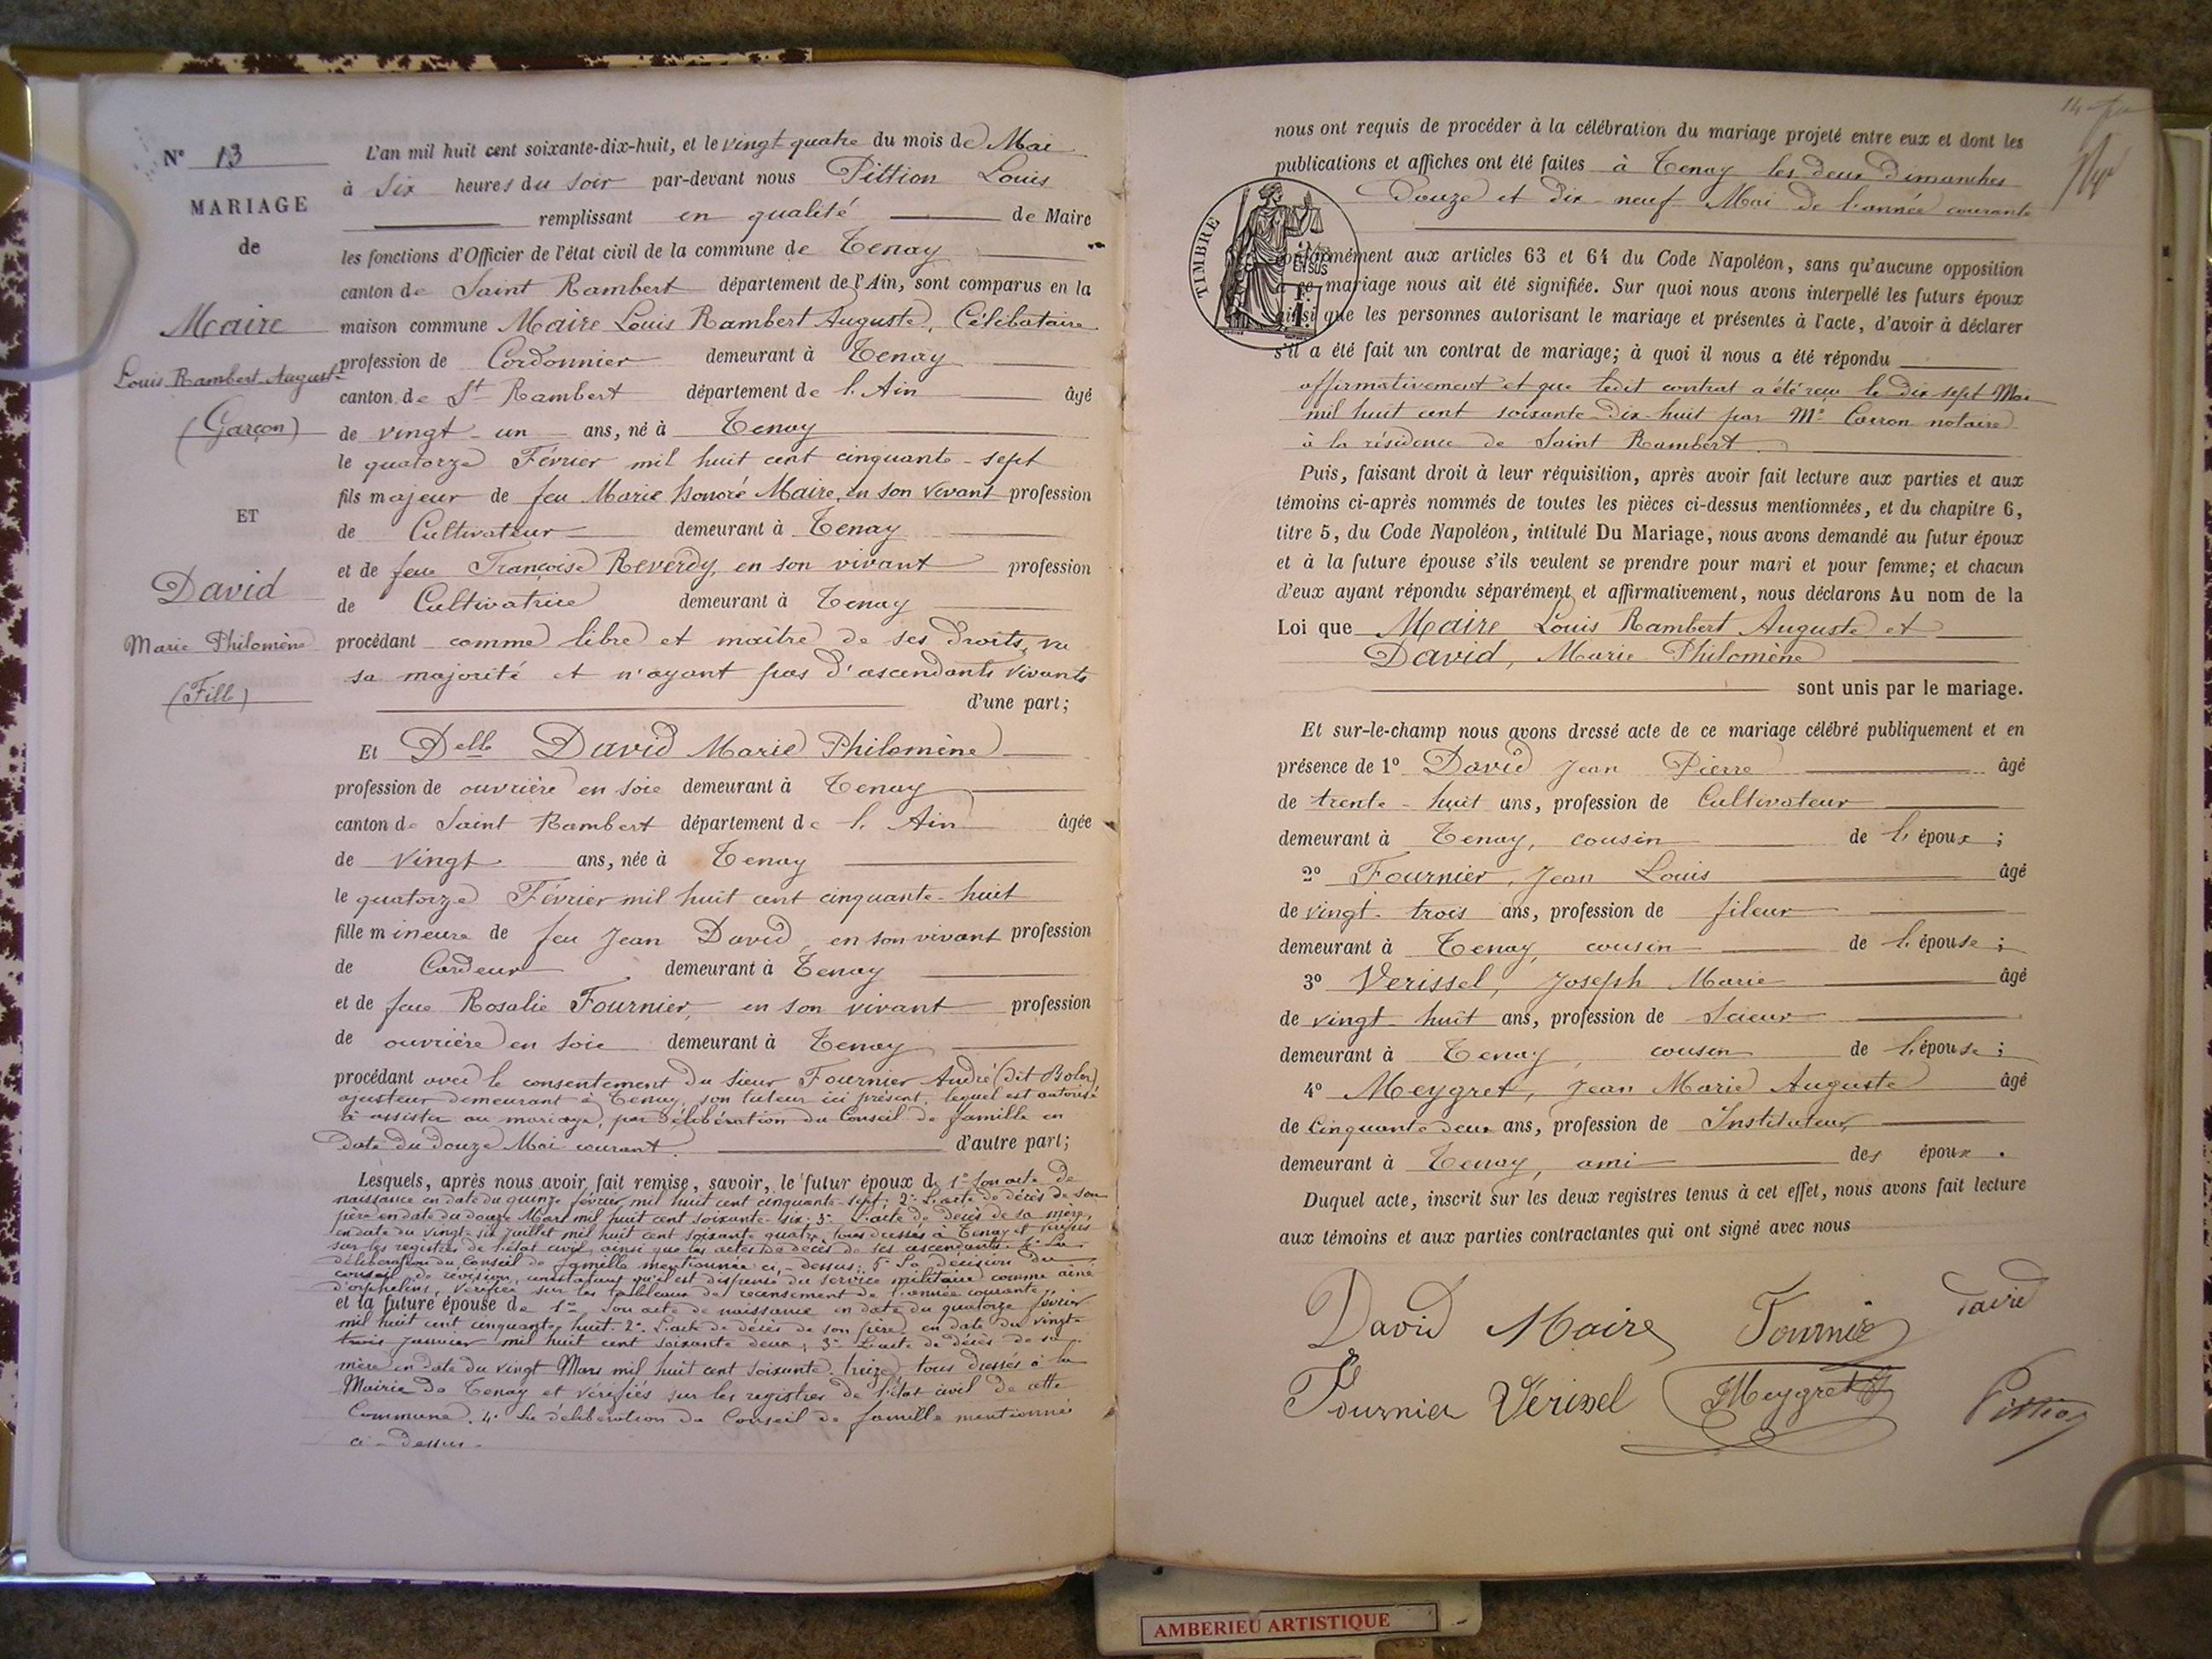 N° 13
MARIAGE
de
Maire
Louis Rambert Auguste
(Garçon)
ET
David
Marie Philomène
(Fille)
L'an mil huit cent soixante-dix-huit, et le vingt quatre du mois de Mai
à Six heures du soir par-devant nous Pittion Louis
remplissant en qualité de Maire
les fonctions d'Officier de l'état civil de la commune de Tenay
canton de Saint Rambert département de l'Ain, sont comparus en la
maison commune Maire Louis Rambert Auguste, Célibataire
profession de Cordonnier demeurant à Tenay
canton de St Rambert département de l'Ain âgé
de vingt-un ans, né à Tenay
le quatorze Février mil huit cent cinquante-sept
fils majeur de feu Marie Honoré Maire, en son vivant profession
de Cultivateur demeurant à Tenay
et de feue Françoise Reverdy, en son vivant profession
de Cultivatrice demeurant à Tenay
procédant comme libre et maître de ses droits, vu
sa majorité et n'ayant pas d'ascendants vivants
d'une part;
Et Delle David Marie Philomène
profession de ouvrière en soie demeurant à Tenay
canton de Saint Rambert département de l'Ain âgée
de vingt ans, née à Tenay
le quatorze Février mil huit cent cinquante-huit
fille mineure de feu Jean David, en son vivant profession
de Cardeur demeurant à Tenay
et de feue Rosalie Fournier, en son vivant profession
de ouvrière en soie demeurant à Tenay
procédant avec le consentement du sieur Fournier André (dit Boler)
ajusteur demeurant à Tenay, son tuteur ici présent, lequel est autorisé
à assister au mariage, par délibération du Conseil de famille en
date du douze Mai courant. d'autre part;
Lesquels, après nous avoir fait remise, savoir, le futur époux de 1° son acte de
naissance en date du quinze février mil huit cent cinquante-sept; 2° L'acte de décès de son
père en date du douze Mars mil huit cent soixante-six; 3° L'acte de décès de sa mère,
en date du vingt-six juillet mil huit cent soixante quatre, tous dressés à Tenay et
sur les registres de l'état civil, ainsi que les actes de décès de ses ascendants. 4° La
délibération du Conseil de famille mentionnée ci-dessus; 5° La décision du
conseil de révision, constatant qu'il est dispensé du service militaire comme aîné
d'orphelins, vérifiée sur les tableaux de recensement de l'année courante,
et la future épouse de 1° Son acte de naissance en date du quatorze février
mil huit cent cinquante huit. 2° L'acte de décès de son père, en date du vingt-
trois Janvier mil huit cent soixante deux; 3° L'acte de décès de sa
mère en date du vingt Mars mil huit cent soixante-treize, tous dressés à la
Mairie de Tenay et vérifiés sur les registres de l'état civil de cette
Commune. 4° La délibération du Conseil de famille mentionnée
ci-dessus.
nous ont requis de procéder à la célébration du mariage projeté entre eux et dont les
publications et affiches ont été faites à Tenay les deux dimanches
Douze et dix-neuf Mai de l'année courante
TIMBRE
EN SUS
conformément aux articles 63 et 64 du Code Napoléon, sans qu'aucune opposition
à ce mariage nous ait été signifiée. Sur quoi nous avons interpellé les futurs époux
ainsi que les personnes autorisant le mariage et présentes à l'acte, d'avoir à déclarer
s'il a été fait un contrat de mariage; à quoi il nous a été répondu
affirmativement et que ledit contrat a été reçu le dix-sept Mai
mil huit cent soixante-dix-huit par Me Carron notaire
à la résidence de Saint Rambert.
Puis, faisant droit à leur réquisition, après avoir fait lecture aux parties et aux
témoins ci-après nommés de toutes les pièces ci-dessus mentionnées, et du chapitre 6,
titre 5, du Code Napoléon, intitulé Du Mariage, nous avons demandé au futur époux
et à la future épouse s'ils veulent se prendre pour mari et pour femme; et chacun
d'eux ayant répondu séparément et affirmativement, nous déclarons Au nom de la
Loi que Maire Louis Rambert Auguste et
David, Marie Philomène
sont unis par le mariage.
Et sur-le-champ nous avons dressé acte de ce mariage célébré publiquement et en
présence de 1° David Jean Pierre âgé
de trente-huit ans, profession de Cultivateur
demeurant à Tenay, cousin de l'époux;
2° Fournier, Jean Louis âgé
de vingt-trois ans, profession de fileur
demeurant à Tenay, cousin de l'épouse;
3° Verissel, Joseph Marie âgé
de vingt-huit ans, profession de Scieur
demeurant à Tenay, cousin de l'épouse;
4° Meygret, Jean Marie Auguste âgé
de Cinquante deux ans, profession de Instituteur,
demeurant à Tenay, ami des époux.
Duquel acte, inscrit sur les deux registres tenus à cet effet, nous avons fait lecture
aux témoins et aux parties contractantes qui ont signé avec nous
David Maire Fournier David
Fournier Verissel Meygret Pittion
AMBERIEU ARTISTIQUE